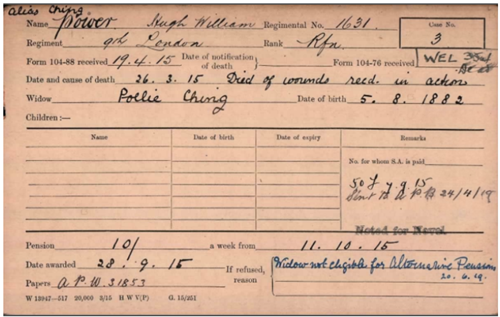 Alias Ching
Name Power Hugh William Regimental No. 1631
Case No.
3
Regiment 9th London Rank Rfn
Form 104-88 received 19.4.15 Date of notification of death Form 104-76 received WEL
Date and cause of death 26.3.15 Died of wounds recd. in action
Widow Pollie Ching Date of birth 5.8.1882
Children:—
Name Date of birth Date of expiry Remarks
No. for whom S.A. is paid
24/4/19
Noted for Naval
Pension 10/ a week from 11.10.15
Date awarded 28.9.15 If refused, reason Widow not eligible for Alternative Pension
20.6.19.
Papers A.P.W. 31853
W 13947—517 20,000 3/15 H W V(P) G.15/251